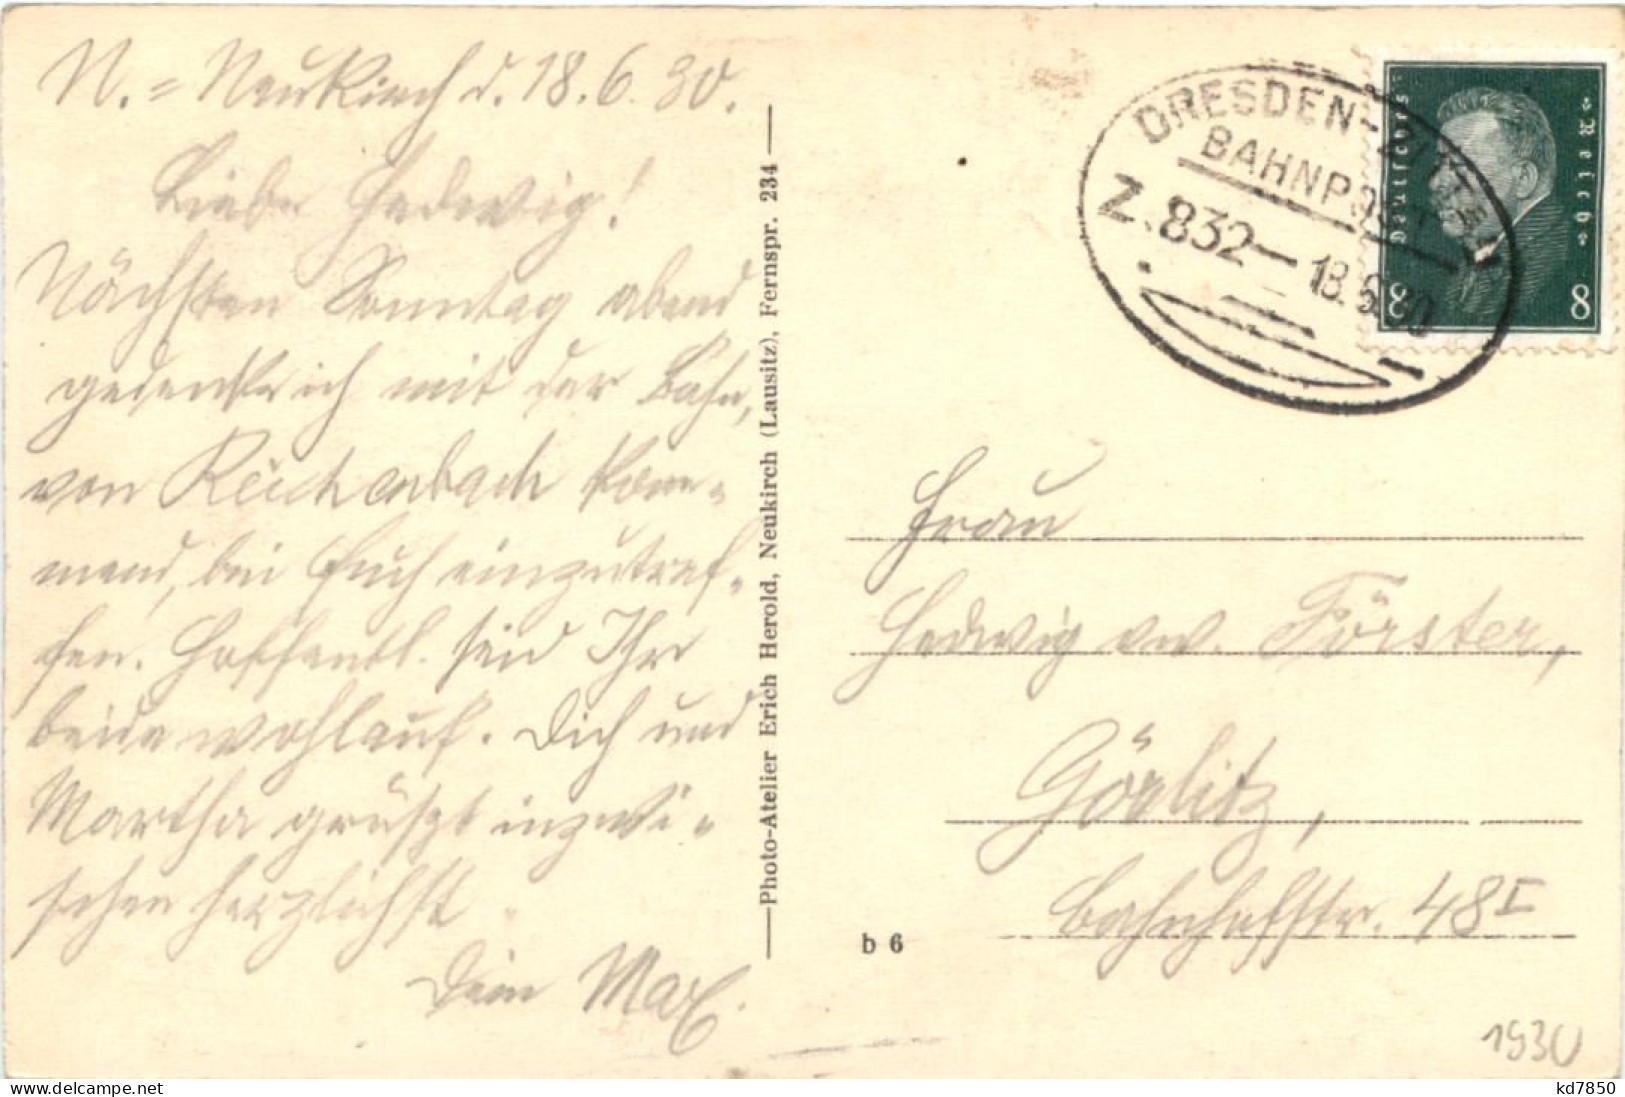 N.=Neukirch d. 18.6.30.
Liebe Hedwig!
Nächsten Sonntag abend
gedenke ich mit der Bahn,
von Reichenbach kom-
mend, bei Euch einzutref-
fen. Hoffentl. seid Ihr
beide wohlauf. Dich und
Martha grüßt inzwi-
schen herzlichst
Dein Max.
Photo-Atelier Erich Herold, Neukirch (Lausitz), Fernspr. 234
b 6
DRESDEN-ZITTAU
BAHNPOST
Z. 832 18.6.30
Deutsches Reich
8 8
Frau
Hedwig vw. Förster,
Görlitz,
Bahnhofstr. 48 I
1930
www.delcampe.net
kd7850